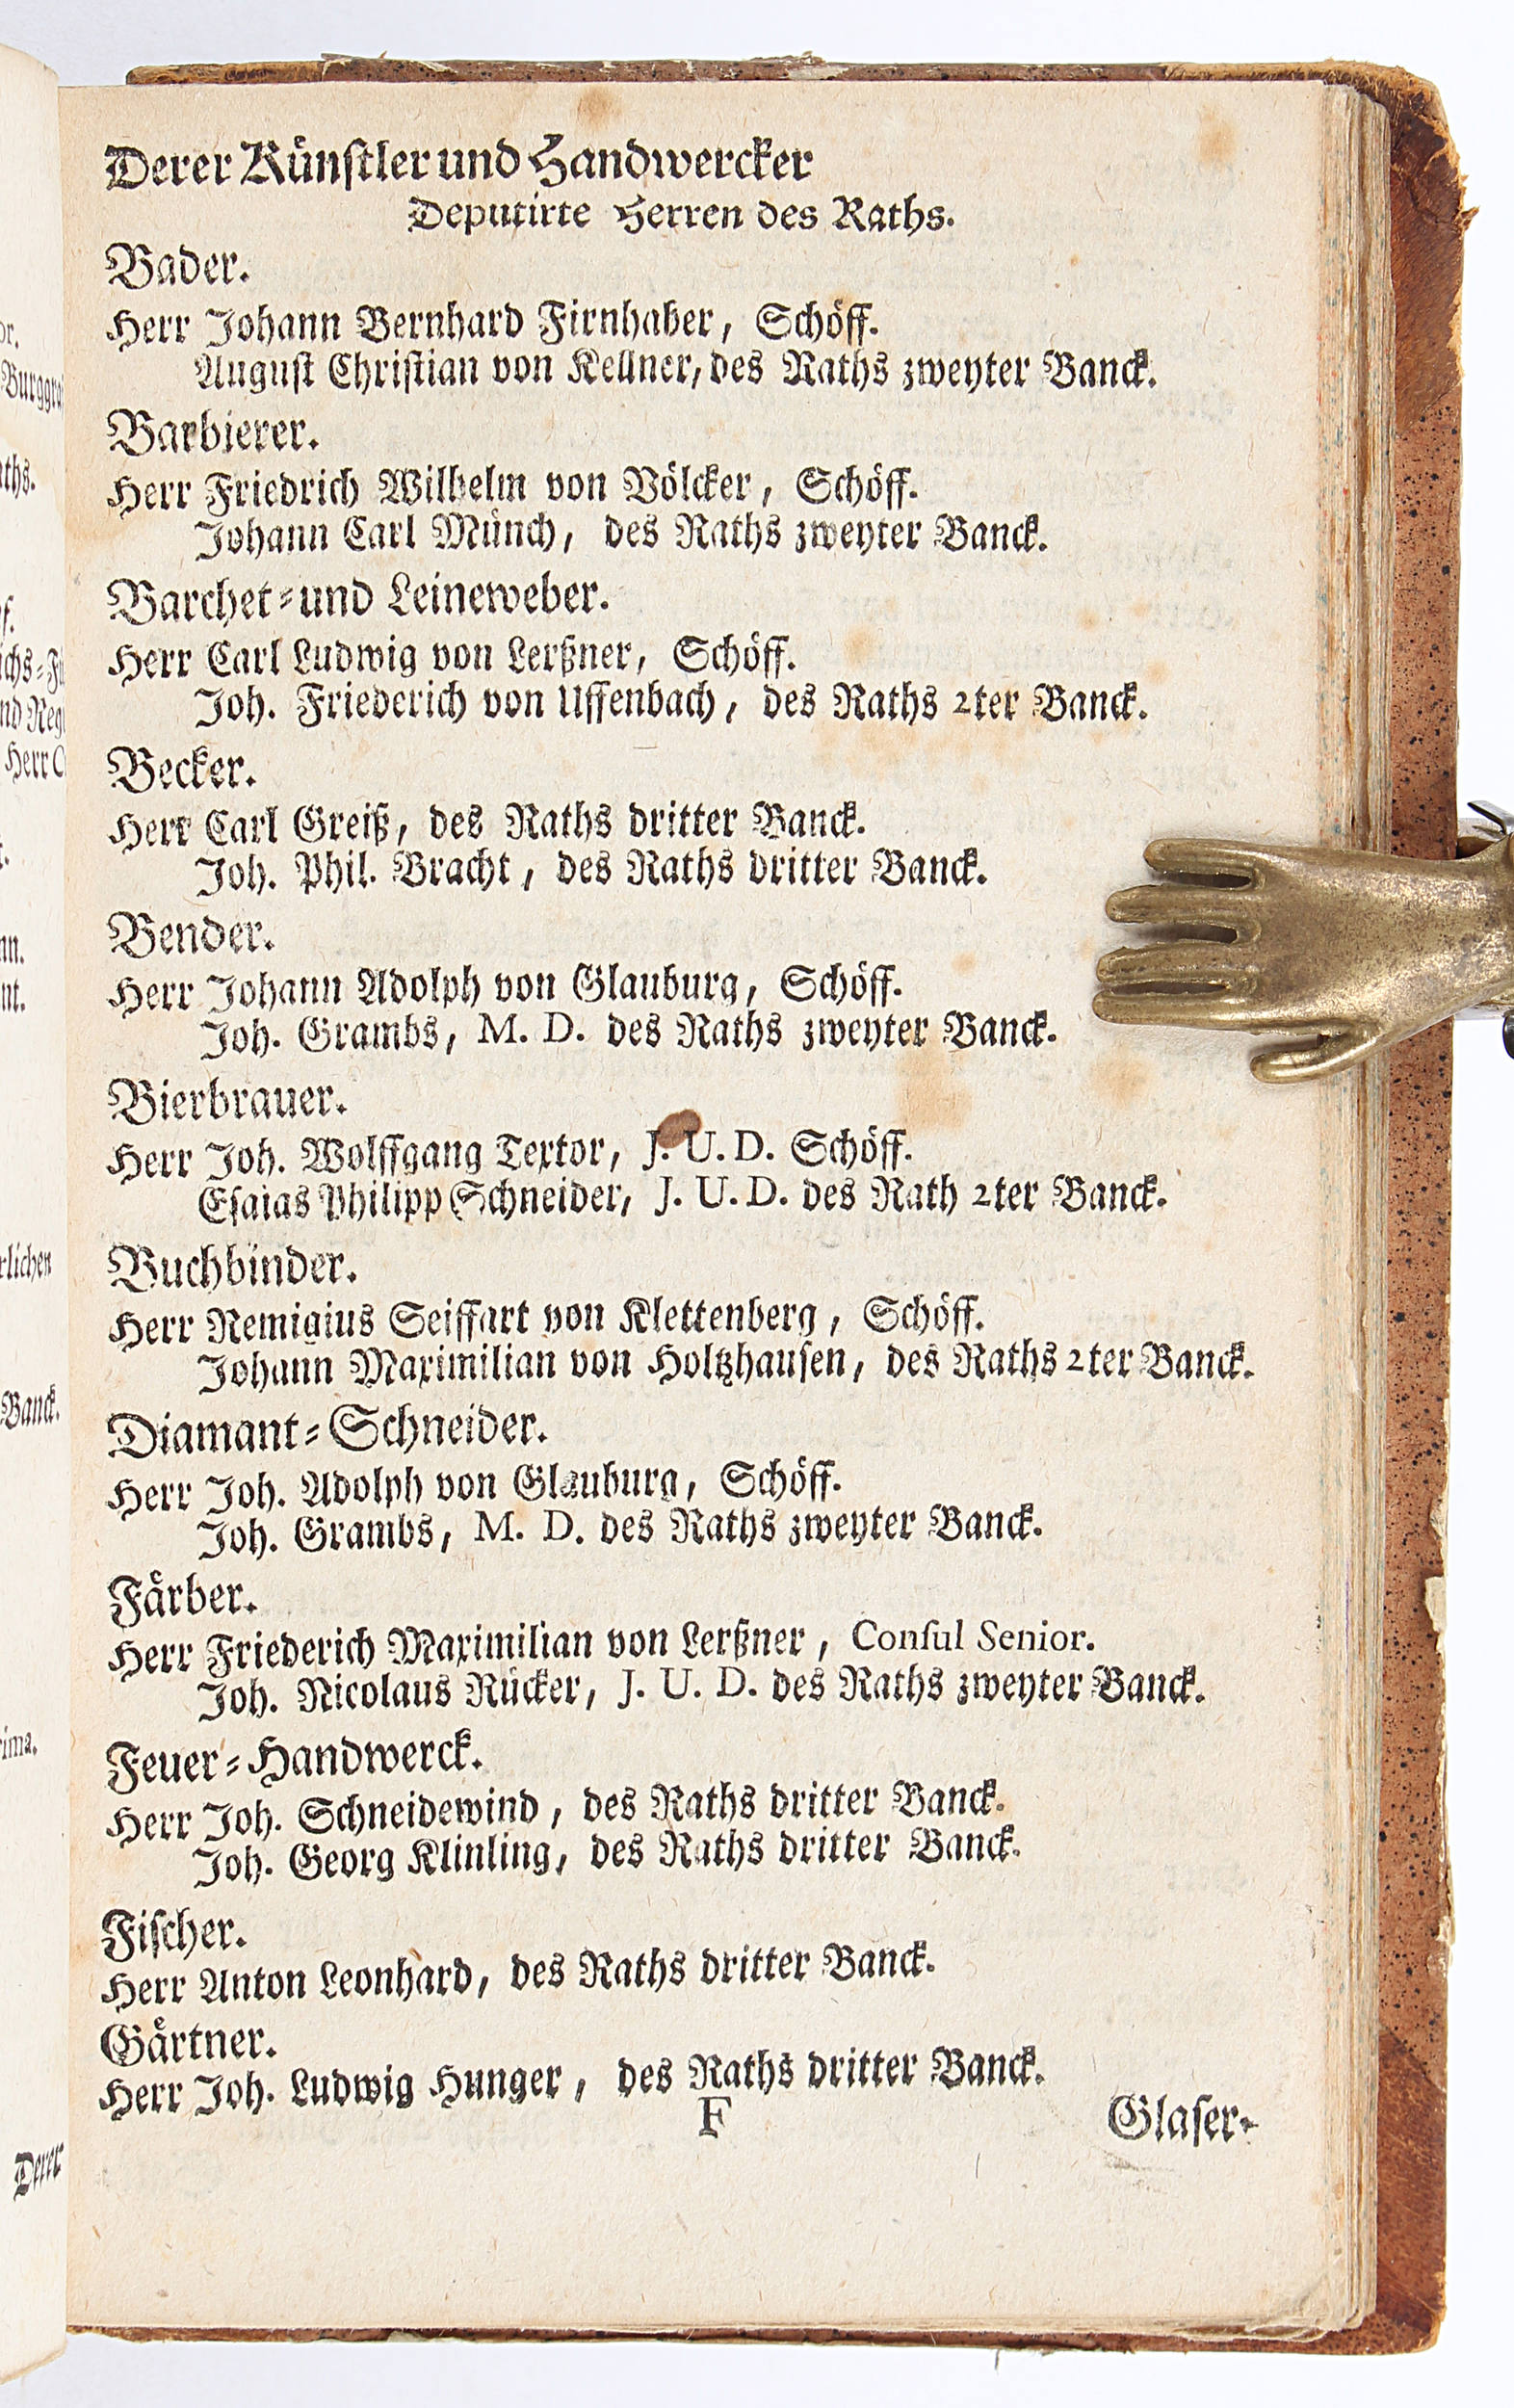 Derer Künſtler und Handwercker
Deputirte Herren des Raths.
Bader.
Herr Johann Bernhard Firnhaber, Schöff.
Auguſt Chriſtian von Kellner, des Raths zweyter Banck.
Barbierer.
Herr Friedrich Wilhelm von Völcker, Schöff.
Johann Carl Münch, des Raths zweyter Banck.
Barchet-und Leineweber.
Herr Carl Ludwig von Lerßner, Schöff.
Joh. Friederich von Uffenbach, des Raths 2ter Banck.
Becker.
Herr Carl Greiß, des Raths dritter Banck.
Joh. Phil. Bracht, des Raths dritter Banck.
Bender.
Herr Johann Adolph von Glauburg, Schöff.
Joh. Grambs, M. D. des Raths zweyter Banck.
Bierbrauer.
Herr Joh. Wolffgang Textor, J. U. D. Schöff.
Eſaias Philipp Schneider, J. U. D. des Rath 2ter Banck.
Buchbinder.
Herr Remigius Seiffart von Klettenberg, Schöff.
Johann Maximilian von Holtzhauſen, des Raths 2ter Banck.
Diamant-Schneider.
Herr Joh. Adolph von Glauburg, Schöff.
Joh. Grambs, M. D. des Raths zweyter Banck.
Färber.
Herr Friederich Maximilian von Lerßner, Conſul Senior.
Joh. Nicolaus Rücker, J. U. D. des Raths zweyter Banck.
Feuer-Handwerck.
Herr Joh. Schneidewind, des Raths dritter Banck.
Joh. Georg Klinling, des Raths dritter Banck.
Fiſcher.
Herr Anton Leonhard, des Raths dritter Banck.
Gärtner.
Herr Joh. Ludwig Hunger, des Raths dritter Banck.
F
Glaſer-